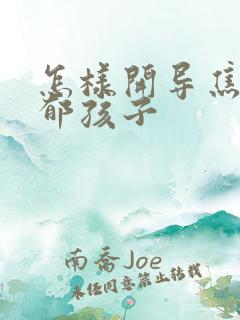 怎样开导焦
郁孩子
南乔Joe
未经同意禁止转载